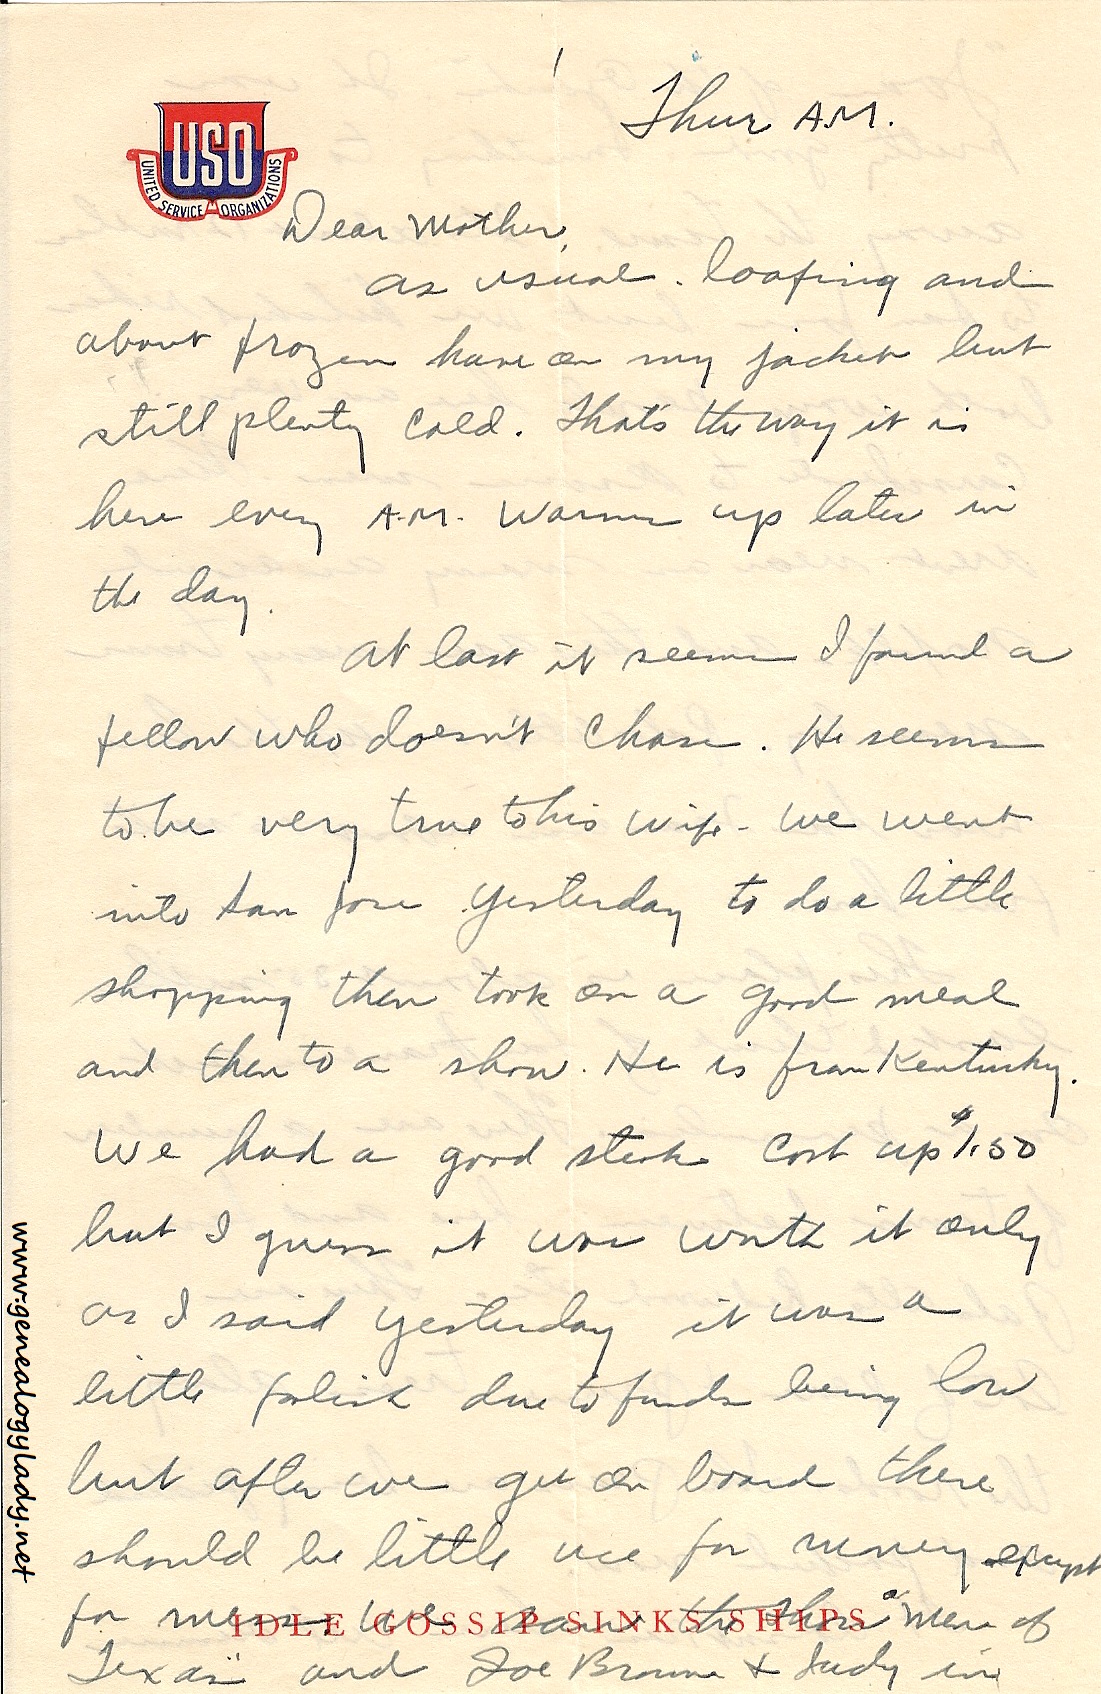 1
Thur A.M.
USO
UNITED SERVICE ORGANIZATIONS
Dear Mother,
as usual. loafing and
about frozen have on my jacket but
still plenty cold. That's the way it is
here every A.M. Warms up later in
the day.
At last it seems I found a
fellow who doesn't chase. He seems
to be very true to his wife - we went
into San Jose yesterday to do a little
shopping then took on a good meal
and then to a show. He is from Kentucky.
We had a good steak cost up $1.50
but I guess it was worth it only
as I said yesterday it was a
little foolish due to funds being low
but after we get on board there
should be little use for money except
for mess. We saw the show "Men of
IDLE GOSSIP SINKS SHIPS
Texas" and Joe Brown & Judy in
www.genealogylady.net